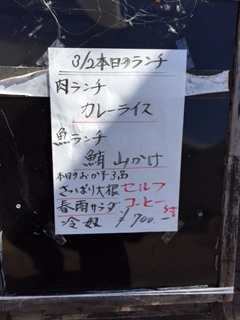 3/2本日のランチ
肉ランチ
カレーライス
魚ランチ
鮪山かけ
本日のおかず3品
さっぱり大根 セルフ
春雨サラダ コーヒー付
冷奴 ¥700-